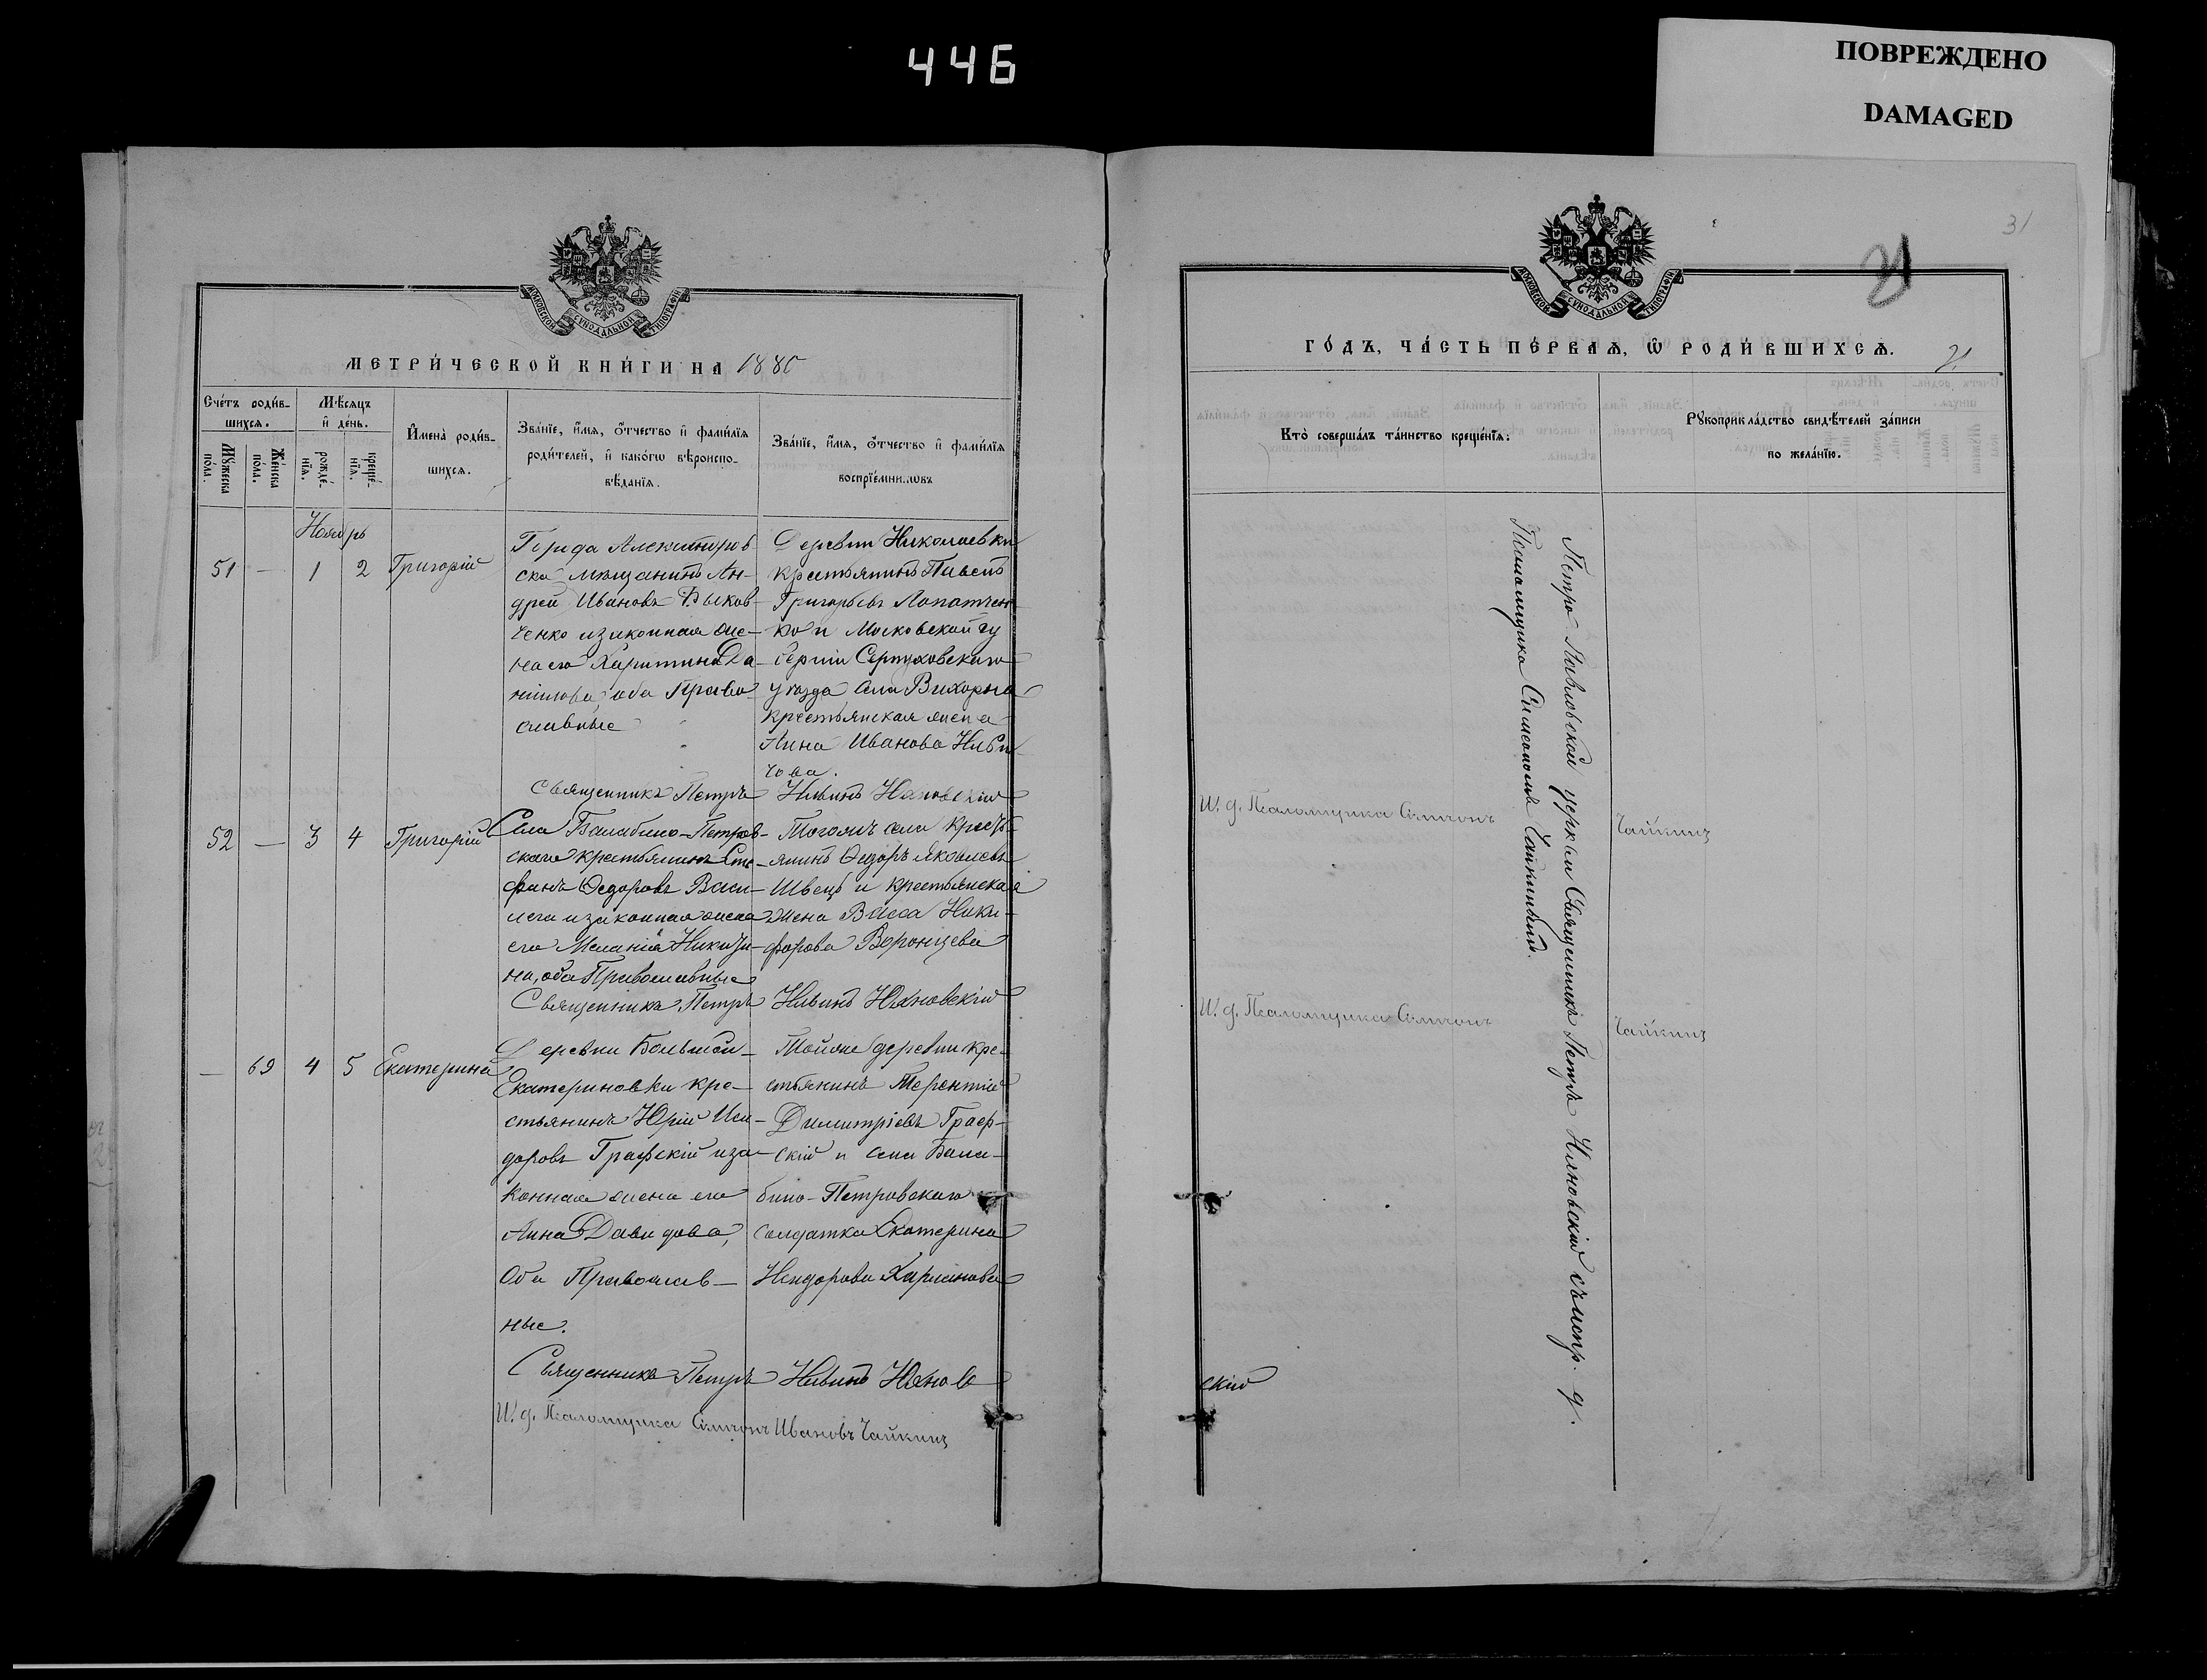 446
ПОВРЕЖДЕНО
DAMAGED
31
МОСКОВСКОЙ СѴНОДАЛЬНОЙ ТИПОГРАФІИ
МЕТРИ́ЧЕСКОЙ КНИ́ГИ НА 1880
Сче́тъ роди́в-
шихсѧ.
Мѣ́сѧцъ
и҆ де́нь.
Мꙋ́жеска по́ла.
Же́нска по́ла.
рожде́-нїѧ.
креще́-нїѧ.
И҆мена̀ роди́в-
шихсѧ.
Зва́нїе, и҆́мѧ, ѻ҆́тчество и҆ фами́лїѧ
роди́телей, и҆ како́гѡ вѣроиспо-
вѣ́данїѧ.
Зва́нїе, и҆́мѧ, ѻ҆́тчество и҆ фами́лїѧ
воспрїе́мниковъ
Ноябрь
51 — 1 2 Григорій
Города Александров-
ска мѣщанинъ Ан-
дрей Ивановъ
ченко и законная же-
на его Харитина Да-
нилова, оба Право-
славные
Деревни Николаевки
крестьянинъ Павелъ
Григорьевъ Лопатчен-
ко и Московской гу
берніи Серпуховскаго
уѣзда села
крестьянская жена
Анна Иванова
чова.
Священникъ Петръ Ильинъ Яновскій
52 — 3 4 Григорій
Села Балабино-Петров-
скаго крестьянинъ Сте-
фанъ Ѳедоровъ Васи-
лега и законная жена
его Меланія Никити-
на, оба Православные
Тогожъ села кресть-
янинъ Ѳедоръ Яковлевъ
Швецъ и крестьянская
жена Васса Ники-
форова Воронцева
Священникъ Петръ Ильинъ Яновскій
— 69 4 5 Екатерина
Деревни Большой-
Екатериновки кре-
стьянинъ Юрій Иси-
доровъ Графскій и за-
конная жена его
Анна Давидова,
Оба Православ-
ные.
Тойже деревни кре-
стьянинъ Терентій
Димитріевъ Граф-
скій и села Бала-
бино-Петровскаго
солдатка Екатерина
Харланова
Священникъ Петръ Ильинъ Янов
И. д. Псаломщика Симеонъ Ивановъ Чайкинъ
МОСКОВСКОЙ СѴНОДАЛЬНОЙ ТИПОГРАФІИ
ГО́ДЪ, ЧА́СТЬ ПЕ́РВАѦ, Ѡ҆ РОДИ́ВШИХСѦ.
Кто̀ соверша́лъ та́инство креще́нїѧ:
Рꙋкоприкла́дство свидѣ́телей за́писи
по жела́нїю.
Петро-Павловской церкви Священникъ Петръ Яновскій съ испр. д.
Псаломщика Симеономъ Чайкинымъ.
И. д. Псаломщика Симеонъ Чайкинъ
И. д. Псаломщика Симеонъ Чайкинъ
скій